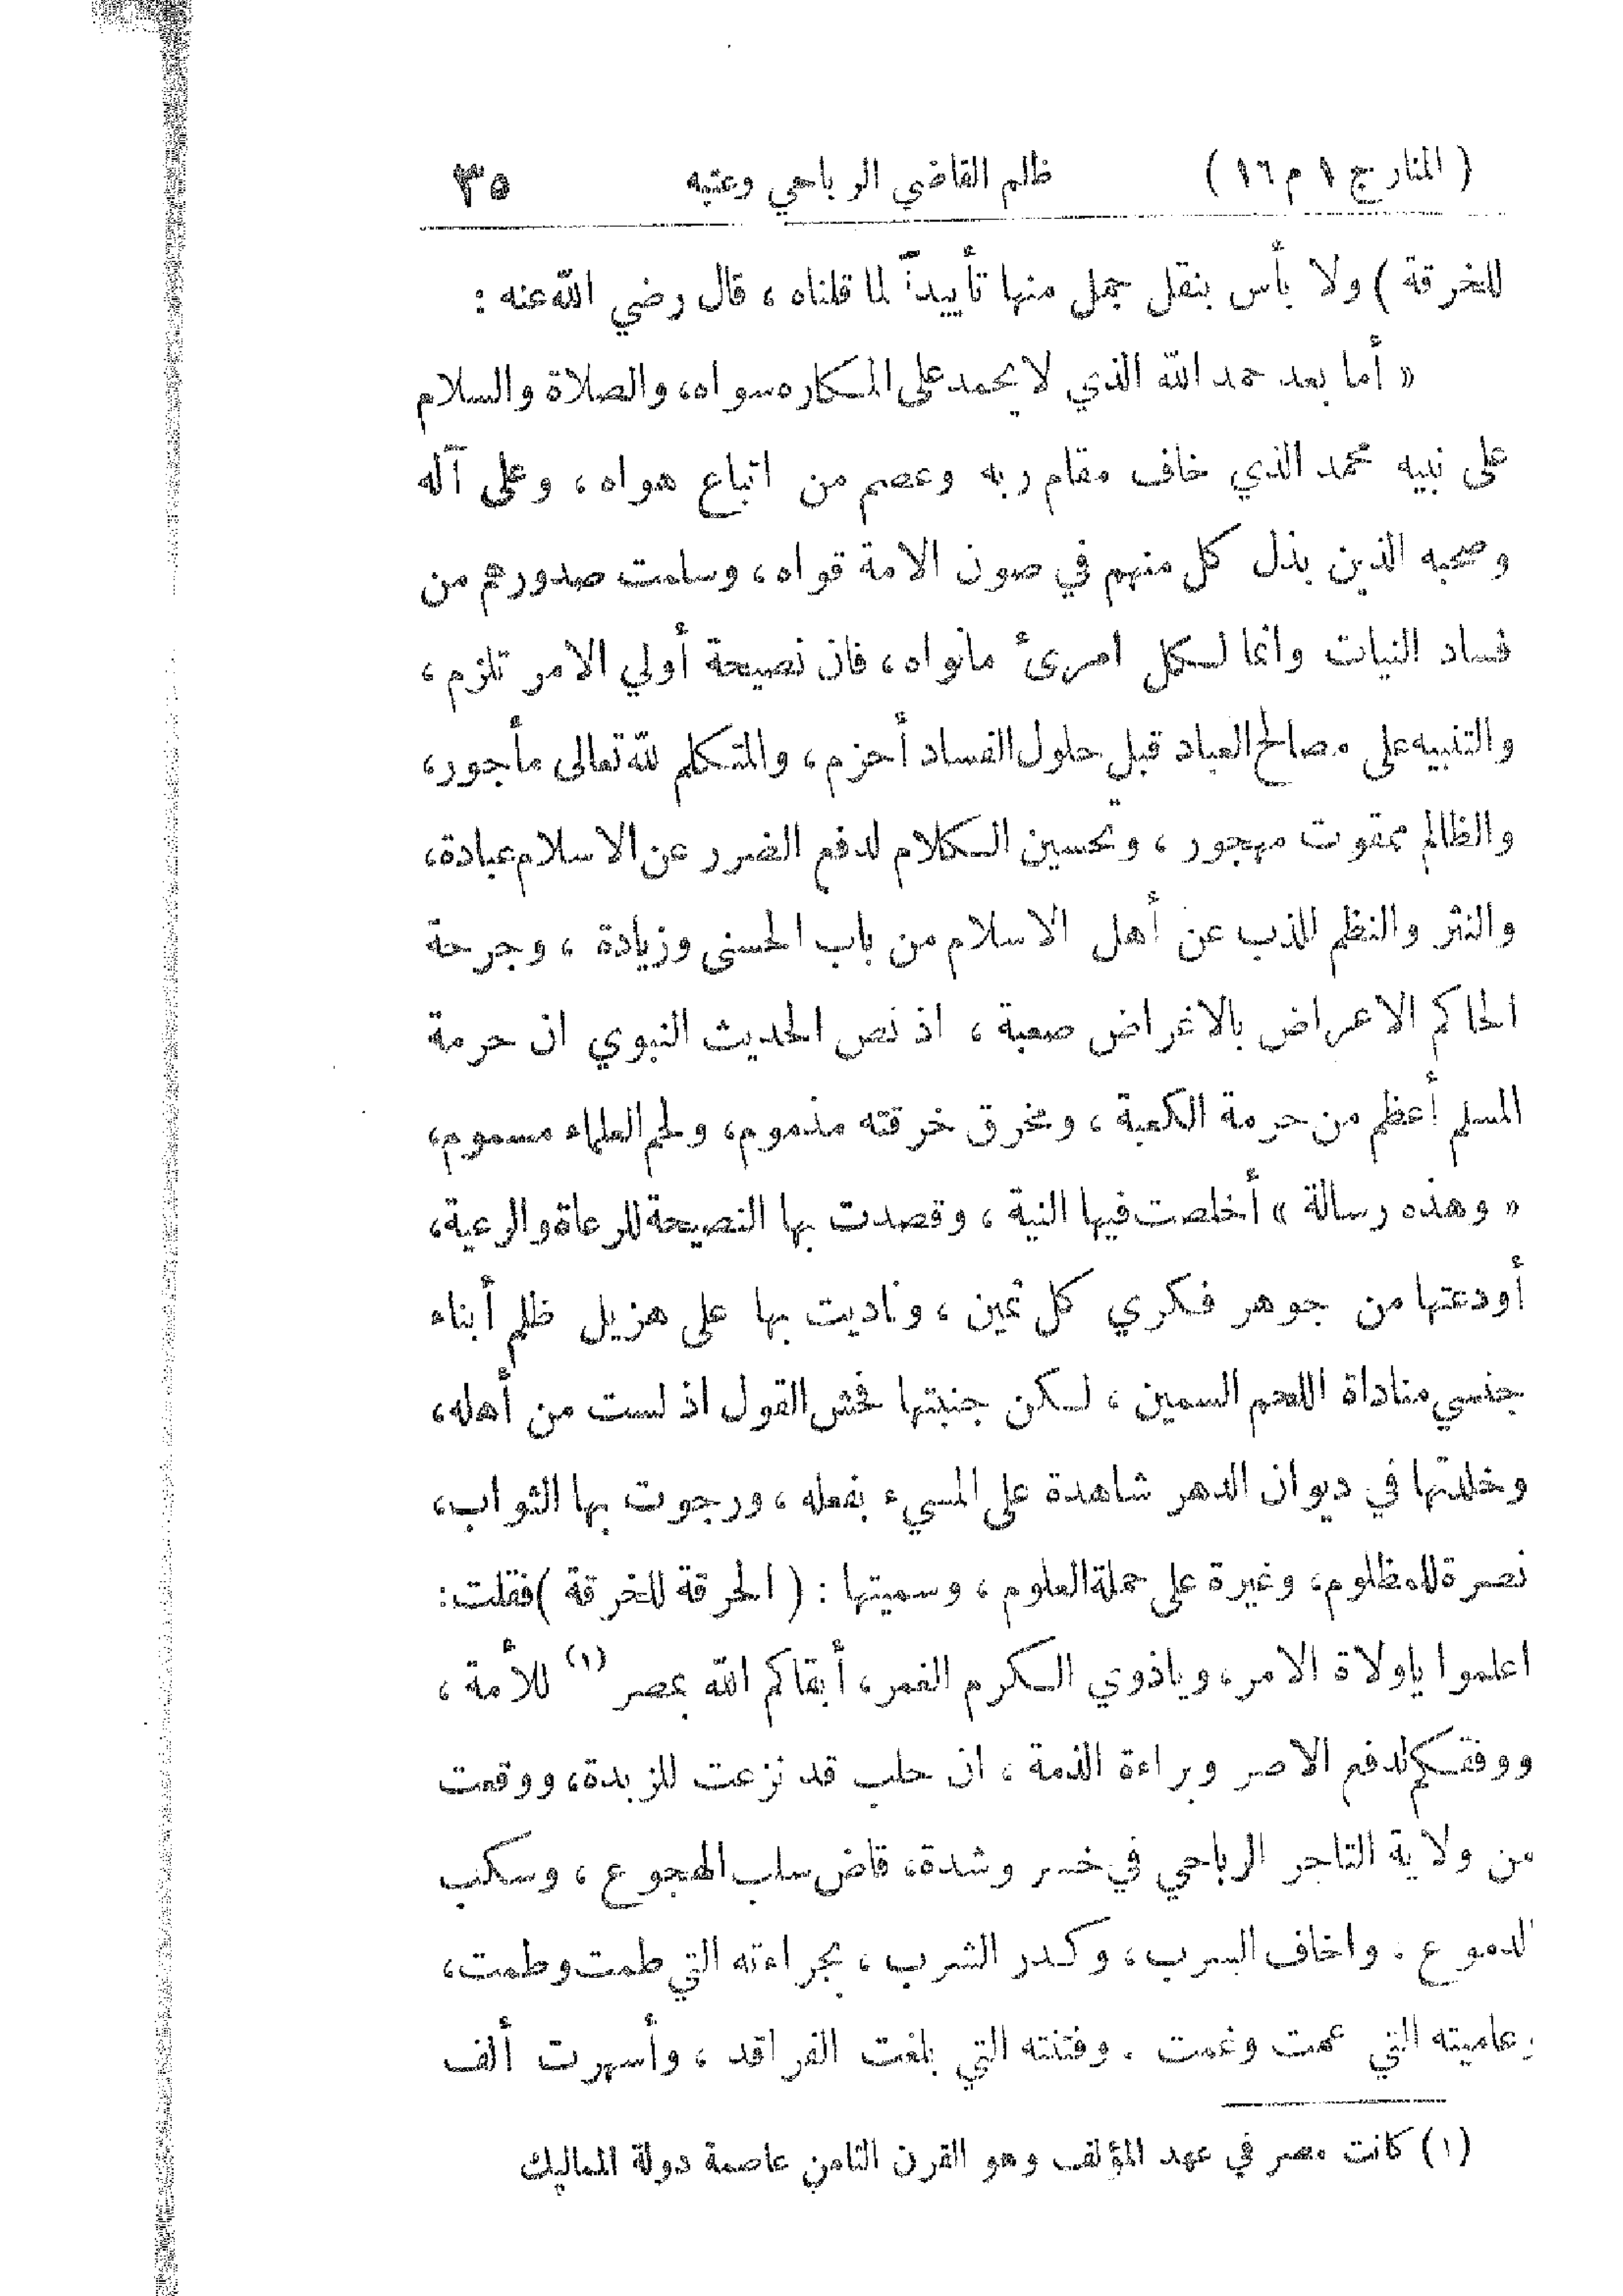 ( المنار ج ١ م ١٦ ) ظلم القاضي الرباحي وعتبه ٣٥
للخرقة ) ولا بأس بنقل جمل منها تأييداً لما قلناه ، قال رضي الله عنه :
« أما بعد حمد الله الذي لا يحمد على المكاره سواه، والصلاة والسلام
على نبيه محمد الذي خاف مقام ربه وعصم من اتباع هواه ، وعلى آله
وصحبه الذين بذل كل منهم في صون الامة قواه ، وسلمت صدورهم من
فساد النيات وانما لكل امرئ مانواه ، فان نصيحة أولي الامر تلزم ،
والتنبيه على مصالح العباد قبل حلول الفساد أحزم ، والمتكلم لله تعالى مأجور،
والظالم ممقوت مهجور ، وتحسين الكلام لدفع الضرر عن الاسلام عبادة،
والنثر والنظم للذب عن أهل الاسلام من باب الحسنى وزيادة ، وجرحة
الحاكم الاعراض بالاغراض صعبة ، اذ نص الحديث النبوي ان حرمة
المسلم أعظم من حرمة الكعبة ، ومخرق خرقته مذموم، ولحم العلماء مسموم،
« وهذه رسالة » أخلصت فيها النية ، وقصدت بها النصيحة للرعاة والرعية،
أودعتها من جوهر فكري كل ثمين ، وناديت بها على هزيل ظلم أبناء
جنسي مناداة اللحم السمين ، لكن جنبتها فحش القول اذ لست من أهله،
وخلدتها في ديوان الدهر شاهدة على المسيء بفعله ، ورجوت بها الثواب،
نصرة للمظلوم، وغيرة على حملة العلوم ، وسميتها : ( الحرقة للخرقة ) فقلت:
اعلموا ياولاة الامر، وياذوي الكرم الغمر، أبقاكم الله بمصر (١) للأمة ،
ووفقكم لدفع الاصر وبراءة الذمة ، ان حلب قد نزعت للزبدة، ووقعت
من ولاية التاجر الرباحي في خسر وشدة، قاض سلب الهجوع ، وسكب
الدموع . واخاف السرب ، وكدر الشرب ، بجراءته التي طمت وطمت،
وعاميته التي عمت وغمت . وفتنته التي بلغت الفراقد ، وأسهرت ألف
(١) كانت مصر في عهد المؤلف وهو القرن الثامن عاصمة دولة المماليك